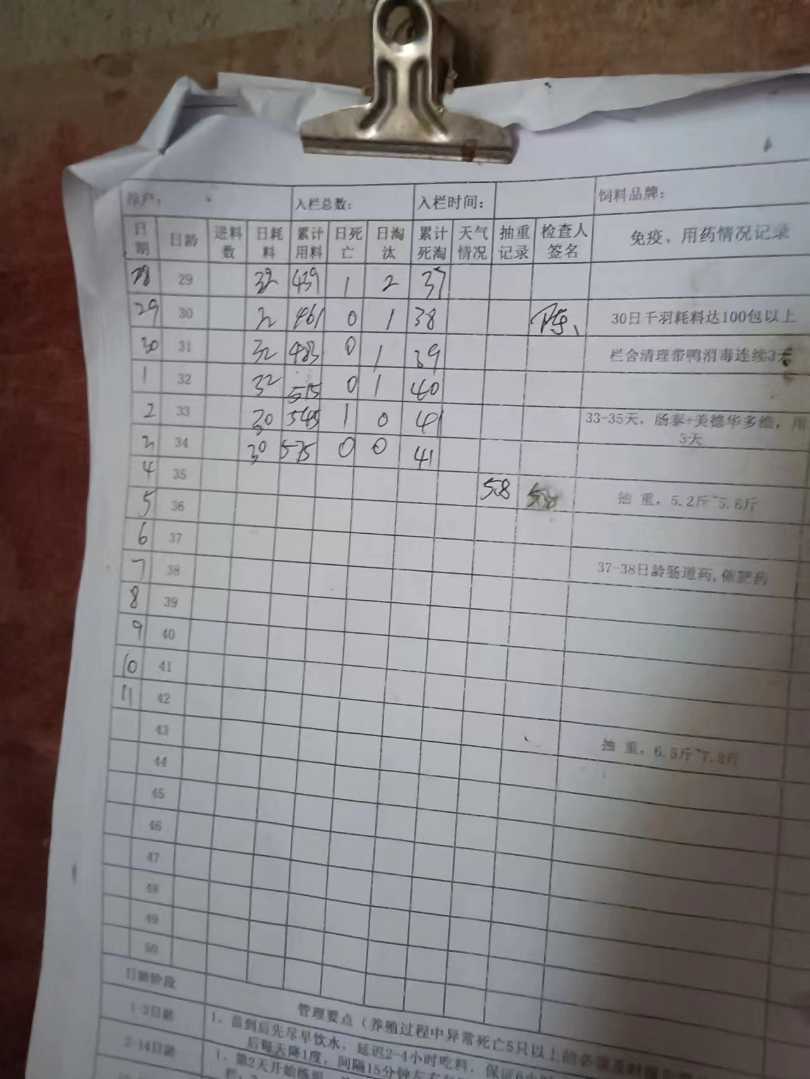 入栏总数： 入栏时间： 饲料品牌：
日期 日龄 进料数 日耗料 累计用料 日死亡 日淘汰 累计死淘 天气情况 抽重记录 检查人签名 免疫、用药情况记录
28 29 32 439 1 2 37
29 30 461 0 1 38 陈、 30日千羽耗料达100包以上
30 31 32 483 0 1 39 栏舍清理带鸭消毒连续3天
1 32 32 515 0 1 40
2 33 30 545 1 0 41 33-35天，肠泰+美德华多维，用3天
3 34 30 575 0 0 41
4 35 58
5 36 抽 重，5.2斤~5.6斤
6 37
7 38 37-38日龄肠道药,催肥药
8 39
9 40
10 41
11 42
43 抽 重，6.5斤~7.2斤
44
45
46
47
48
49
50
日龄阶段 管理要点（养殖过程中异常死亡5只以上的
1-3日龄 1、苗到后先尽早饮水，延迟2-4小时吃料，保证
后每天降1度，间隔15分钟左右
2-14日龄 1、第2天开始